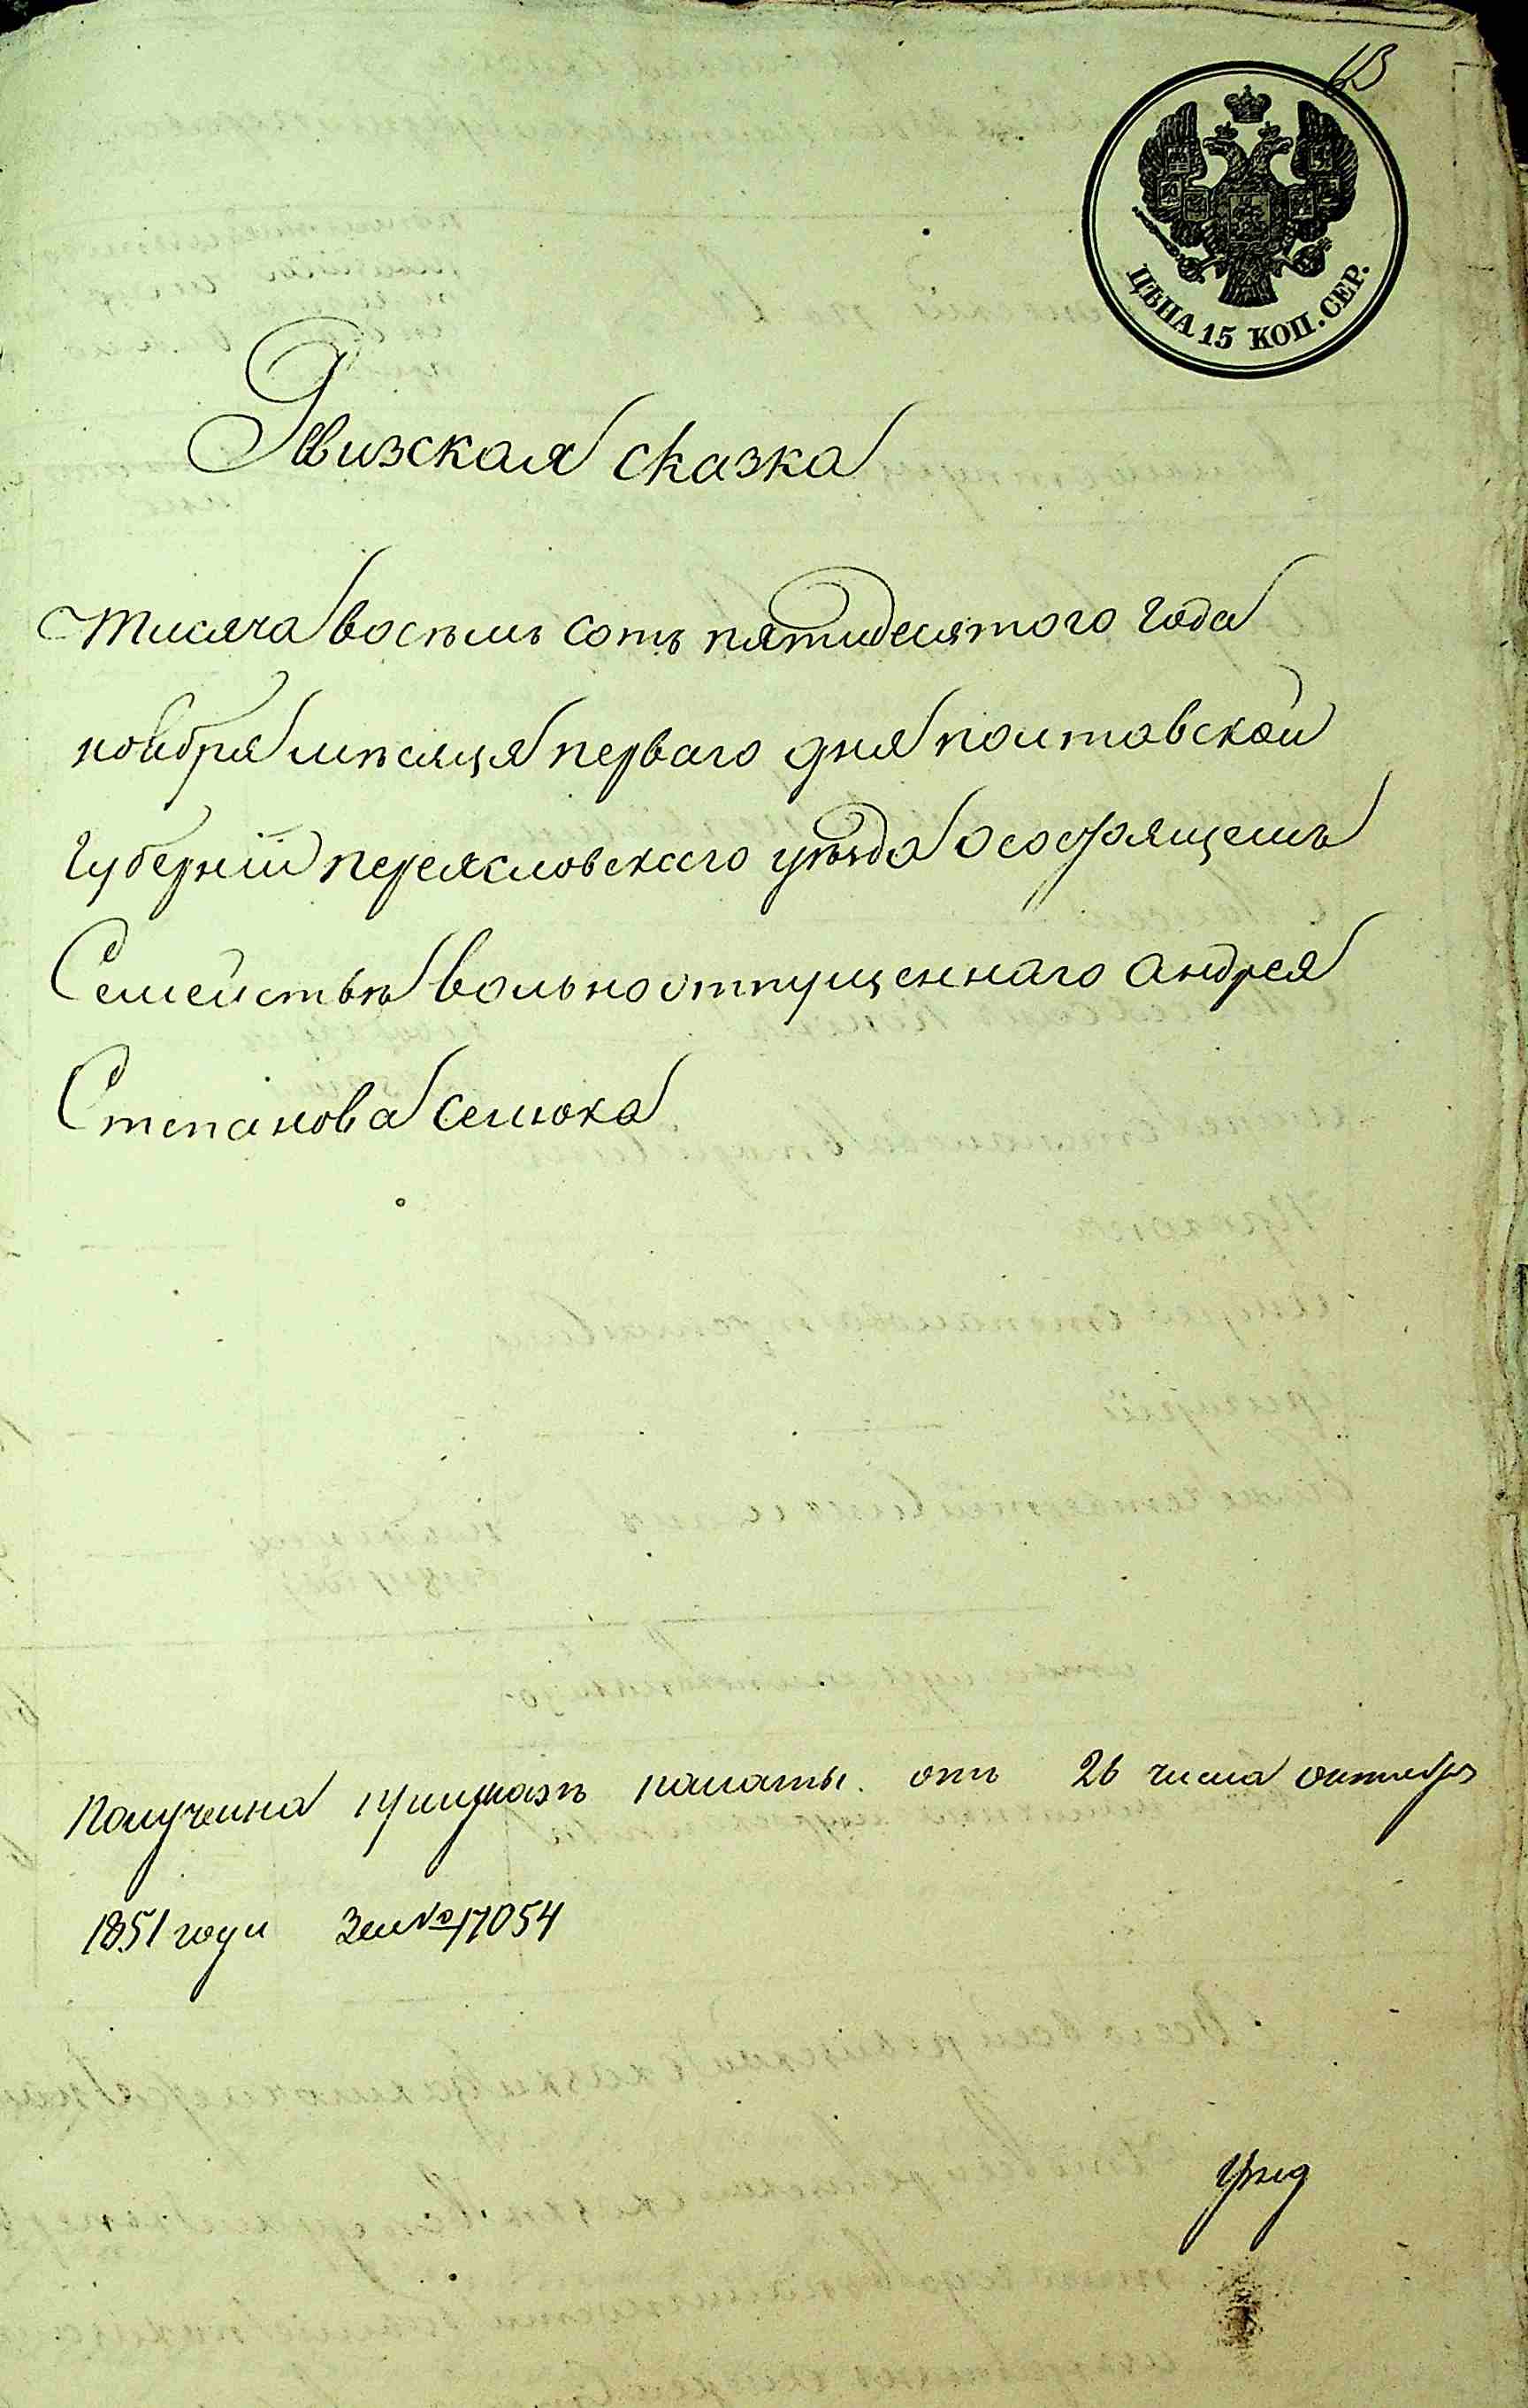 ЦѢНА 15 КОП. СЕР.
Ревизская сказка
тисяча восемь сотъ пятидесятого года
ноября мѣсяця перваго дня полтавской
губерніи переясловского уѣзда о состоящемъ
Семействѣ вольноотпущеннаго андрея
Степанова Семюка
Полученна при указѣ палаты. отъ 26 числа октября
1851 года За № 17054